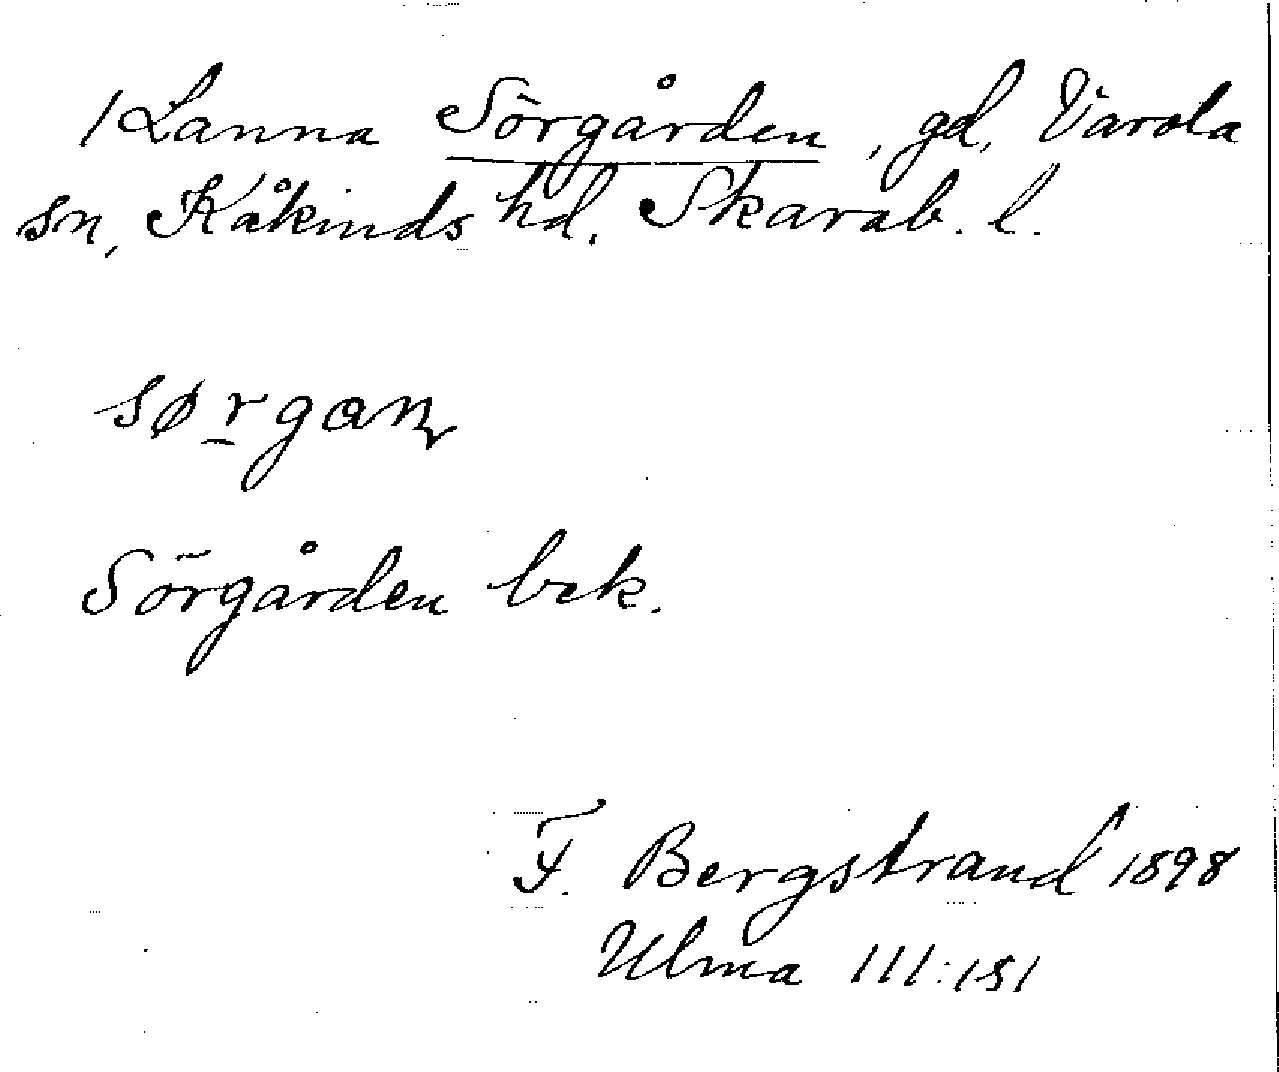 /Lanna Sörgården, gd, Varola
sn, Kåkinds hd. Skarab. l.
sørgaṇ
Sörgården bek.
F. Bergstrand 1898
Ulma 111:151